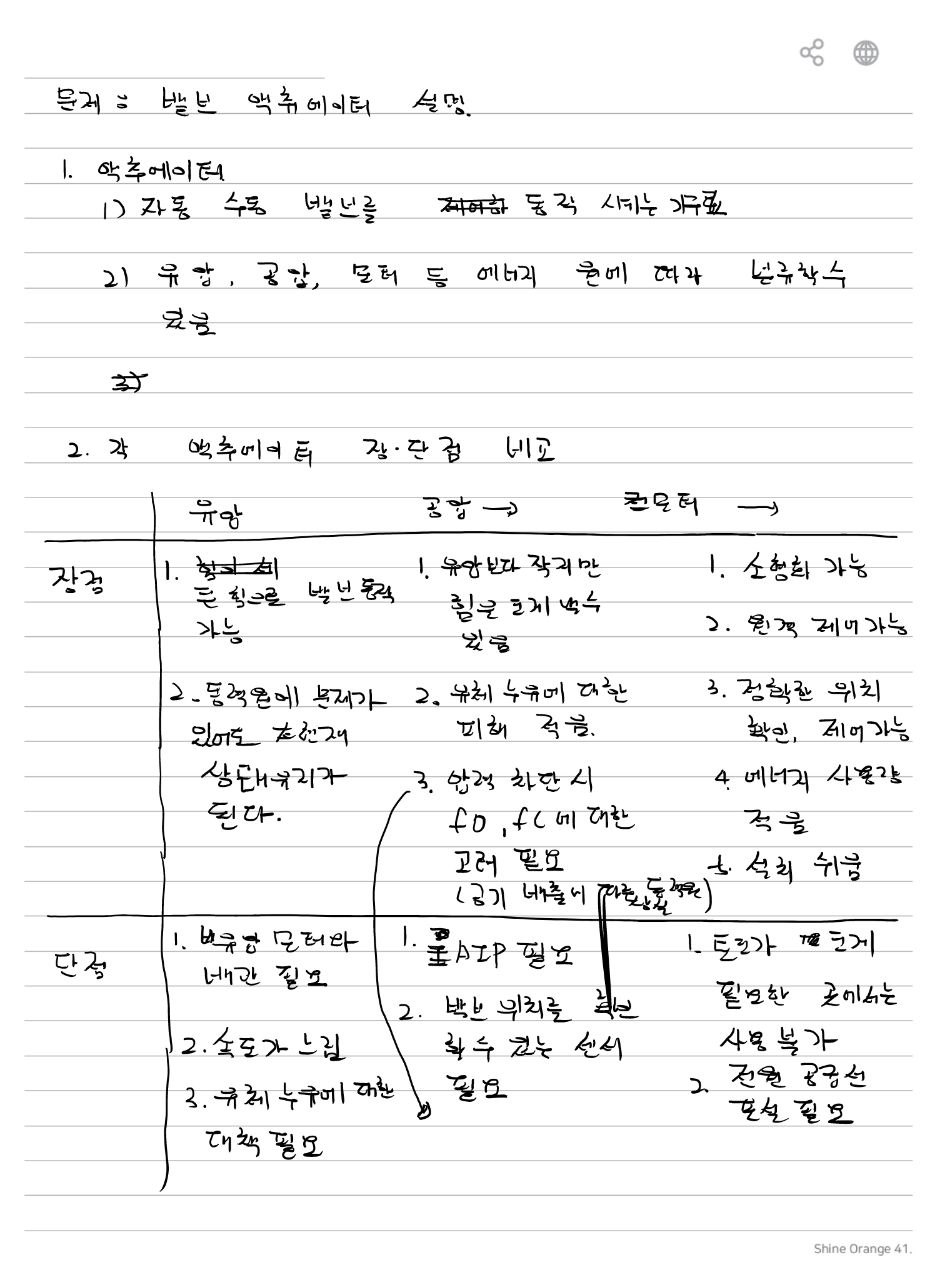 문제 : 밸브 액츄에이터 설명.
1. 액추에이터
1) 자동 수동 밸브를 제어하 동작 시키는 기구로
2) 유압, 공압, 모터 등 에너지 원에 따라 분류할수
있음
3)
2. 각 액추에이터 장·단점 비교
유압 공압 → 모터 →
장점
1.
큰 힘으로 밸브 동작
가능
2. 동력원에 문제가
있어도 현재
상태유지가
된다.
1. 유압보다 작지만
힘을 크게 낼수
있음
2. 유체 누유에 대한
피해 적음.
3. 압력 차단 시
fo, fc에 대한
고려 필요
(공기 배출에 따른 동력원
상실)
1. 소형화 가능
2. 원격 제어가능
3. 정확한 위치
확인, 제어가능
4. 에너지 사용량
적음
5. 설치 쉬움
단점
1. 유압 모터와
배관 필요
2. 속도가 느림
3. 유체 누유에 대한
대책 필요
1. AIP 필요
2. 밸브 위치를 확인
할 수 있는 센서
필요
1. 토크가 크게
필요한 곳에서는
사용 불가
2. 전원 공급선
포설 필요
Shine Orange 41.